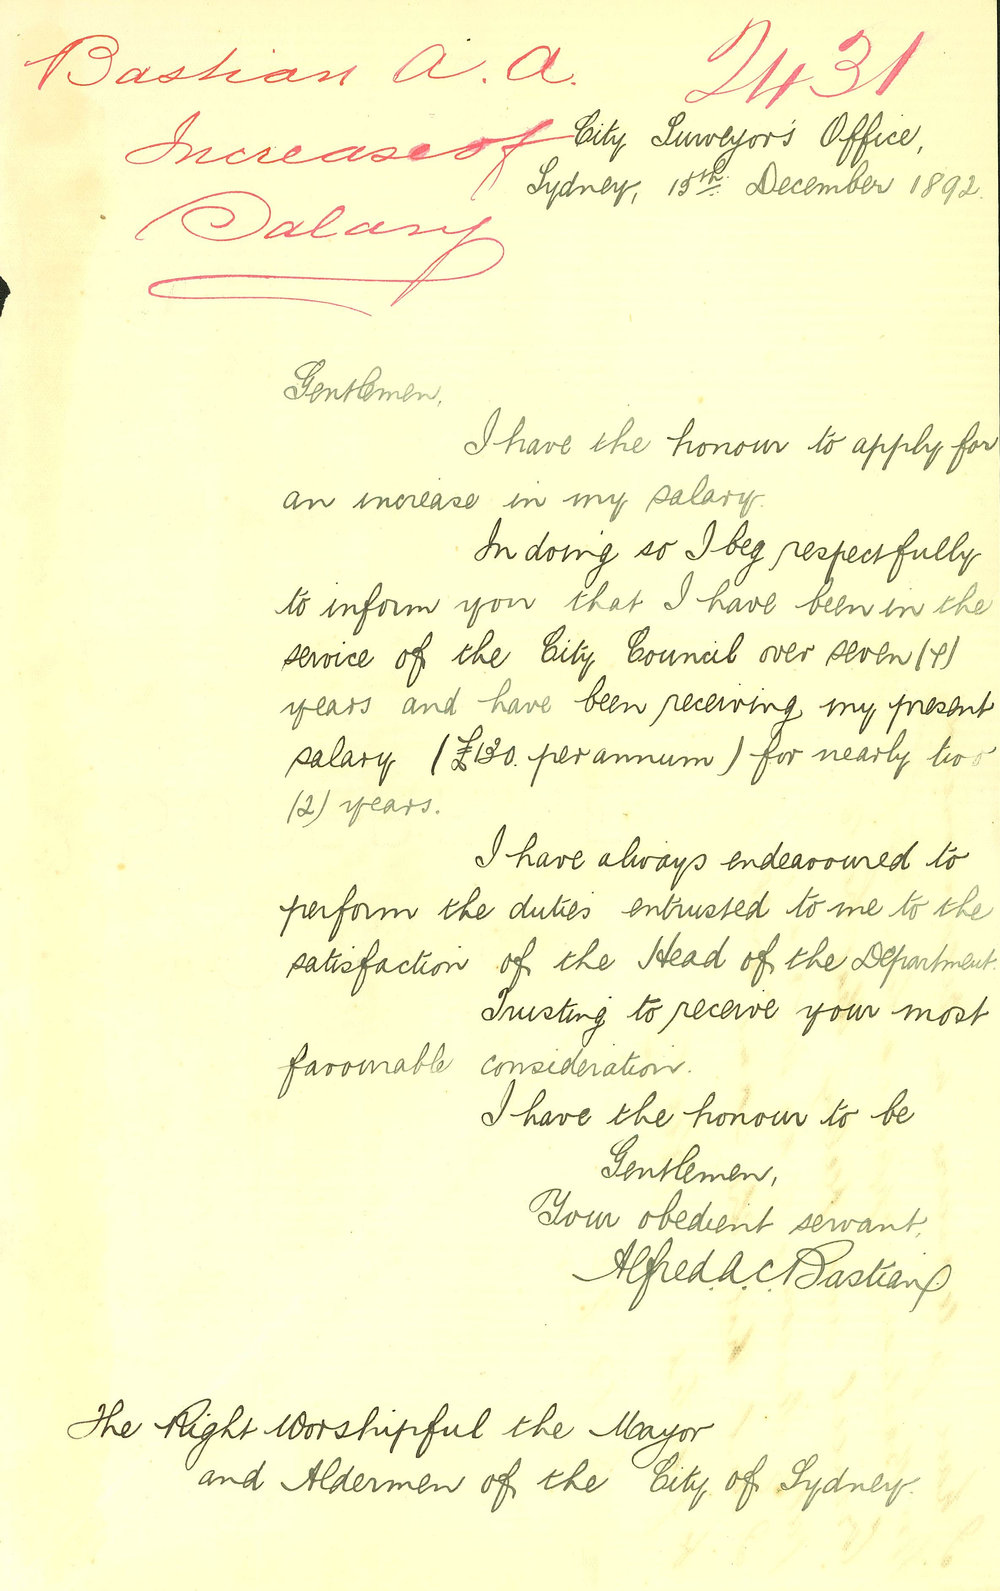 Bastian A. A.
2431
Increase of
Salary
City Surveyor's Office,
Sydney, 15th December 1892.
Gentlemen,
I have the honour to apply for
an increase in my salary.
In doing so I beg respectfully
to inform you that I have been in the
service of the City Council over seven (7)
years and have been receiving my present
salary (£130. per annum) for nearly two
(2) years.
I have always endeavoured to
perform the duties entrusted to me to the
satisfaction of the Head of the Department.
Trusting to receive your most
favourable consideration.
I have the honour to be
Gentlemen,
Your obedient servant,
Alfred. A. C. Bastian
The Right Worshipful the Mayor
and Aldermen of the City of Sydney.